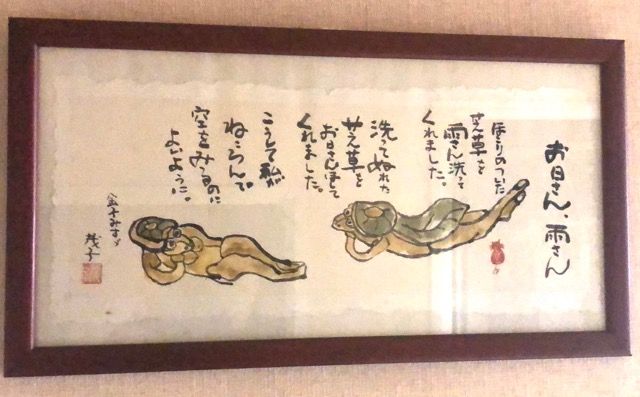 お日さん、雨さん
ほこりのついた
芝草を
雨さん洗って
くれました。
洗ってぬれた
芝草を
お日さんほして
くれました。
こうして私が
ねころんで
空をみるのに
よいように。
金子みすゞ
茂子